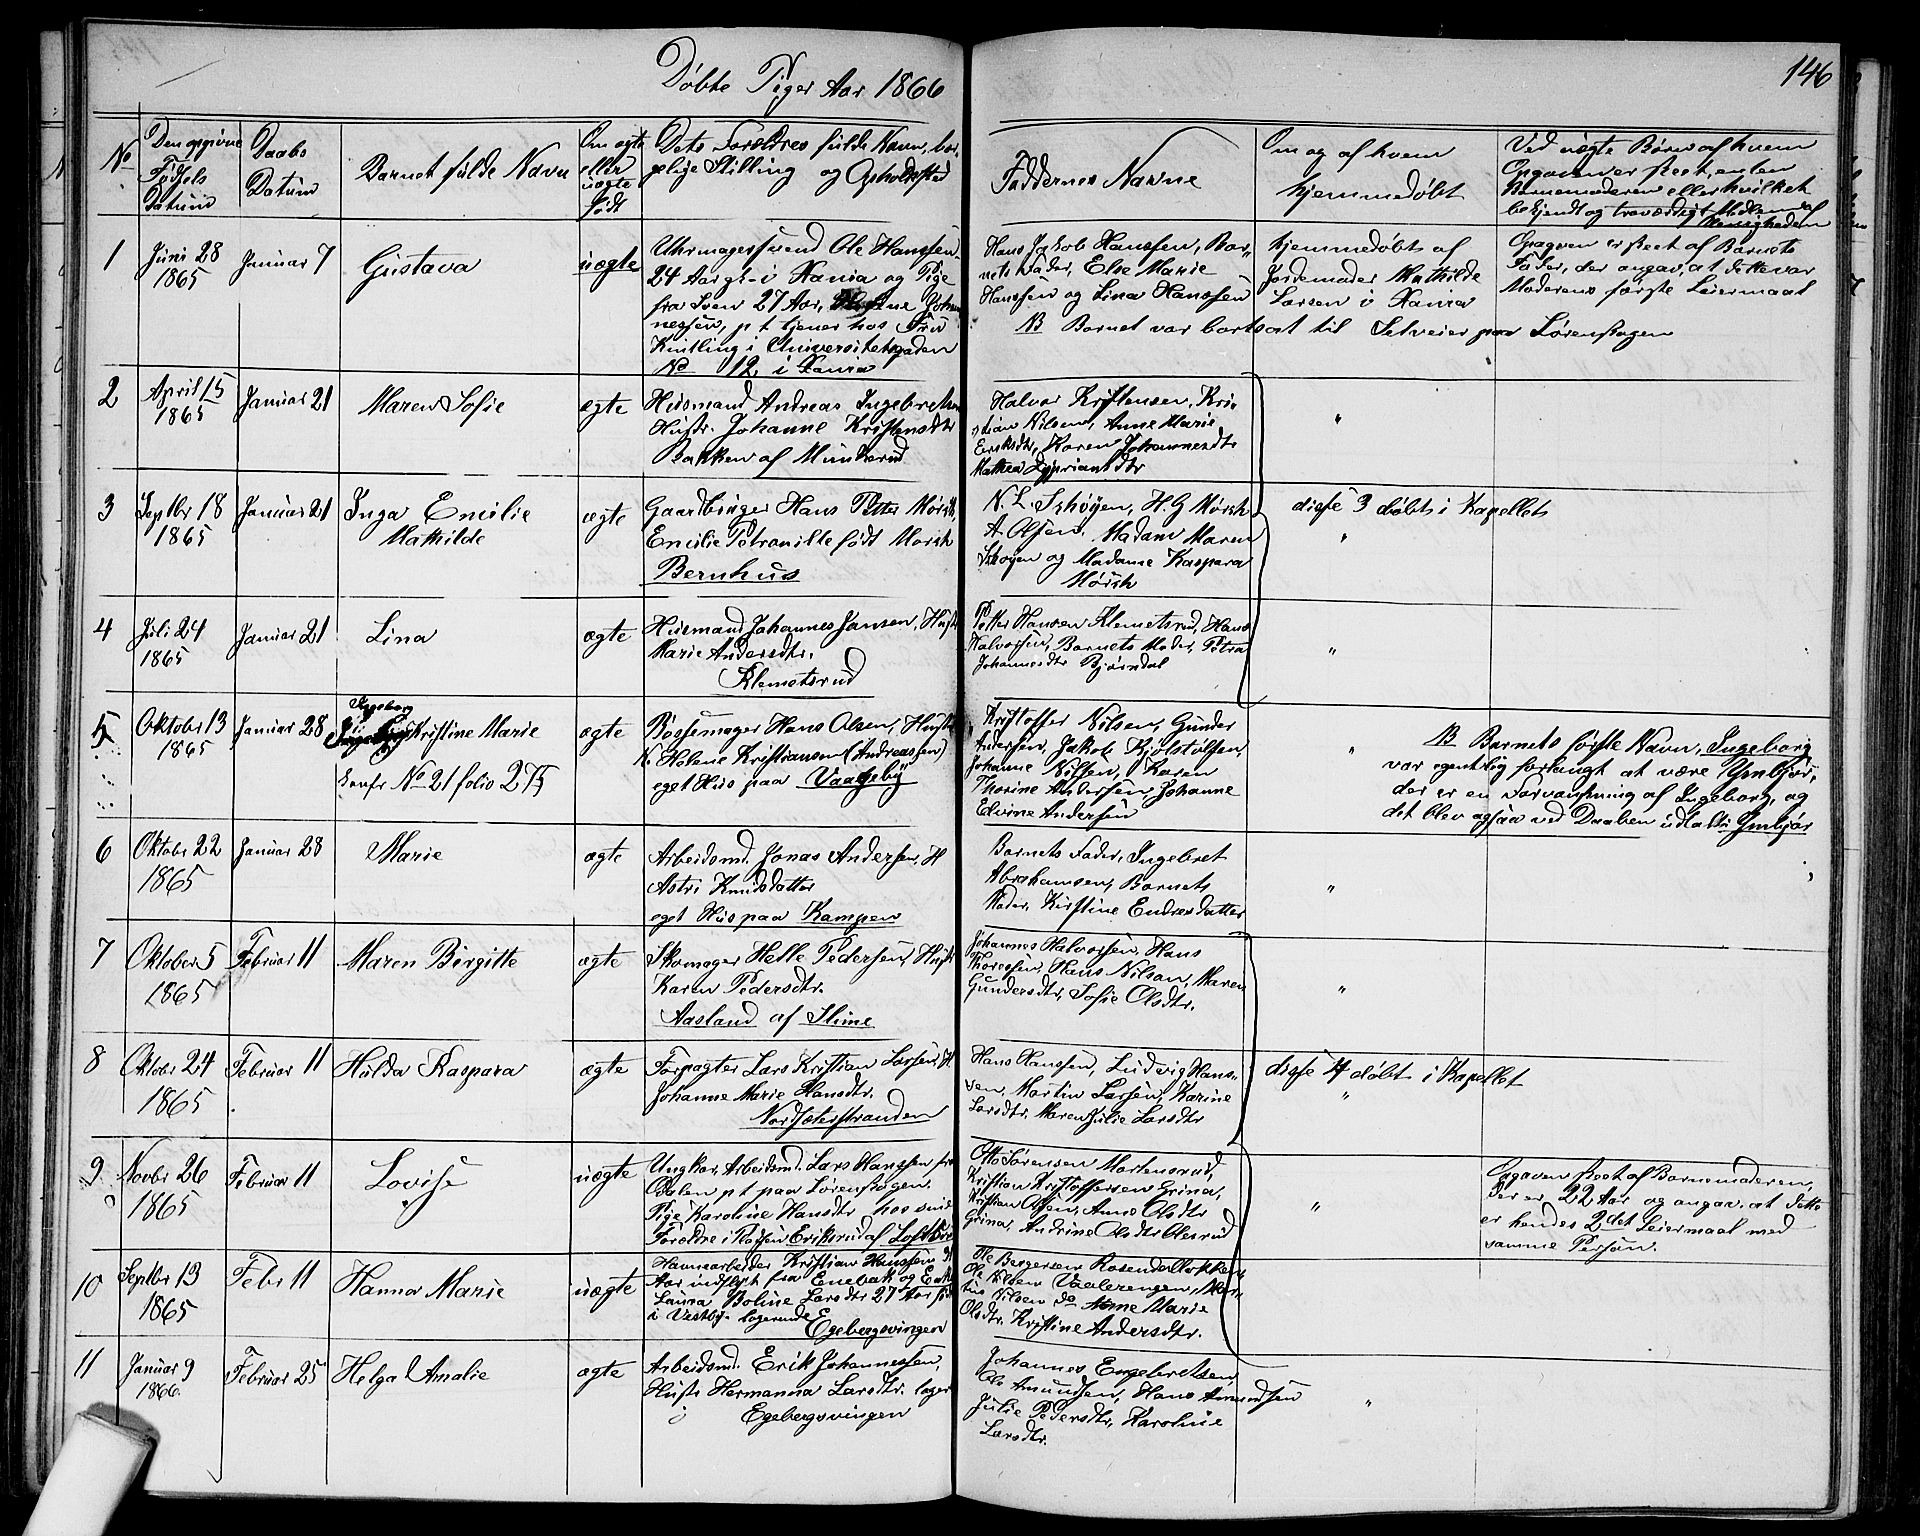 Døbte Piger Aar 1866
146
No
Den opgivne
Fødsels
Datum
Daabs
Datum
Barnets fulde Navn
Om ægte
eller
uægte
født
Dets Forældres fulde Navn, bor-
gelige Stilling og Opholdssted
Faddernes Navne
Om og af hvem
hjemmedøbt
Ved uægte Børn af hvem
Opgaven er skeet, enten
Barnemoderen eller hvilket
bekjendt og troværdigt Medlem af
Menigheden
1
Juni 28
1865
Januar 7
Gustava
uægte
Uhrmagersvend Ole Hanssen
24 Aar gl. i Xania og Pige
fra Sven 27 Aar, Johan
nessen, p t tjener hos Fru
Knitling i Universitetsgaden
No 12 i Xania
Hans Jakob Hanssen, Bar-
nets Fader, Else Marie
Hanssen og Lina Hanssen
hjemmedøbt af
Jordemoder Mathilde
Larsen i Xania
Opgaven er skeet af Barnets
Fader, der angav, at dette var
Moderens første Leiermaal
NB Barnet var bortsat til Selveier paa Sørenskogen
2
April 15
1865
Januar 21
Maren Sofie
ægte
Husmand Andreas Ingebretsen
Hustr. Johanne Kristensdtr
Bakken af Munkerud
Halvor Kristensen, Kri-
stian Nilsen, Anne Marie
Eriksdtr, Karen Johannesdtr
Mathea Cypriansdtr
"
3
Septbr 18
1865
Januar 21
Inga Emilie
Mathilde
ægte
Gaardbruger Hans Petter Mørch,
Emilie Petronille født Morsk
Bernhus
N. L. Schøyen, H. G Mørch
A. Olsen, Madam Maren
Schøyen og Madame Kaspara
Mørch
disse 3 døbt i Kapellet
"
4
Juli 24
1865
Januar 21
Lina
ægte
Husmand Johannes Jansen, Hustr
Marie Andersdtr.
Klemetsrud
Petter Hansen Klemetsrud, Hans
Halvorsen, Barnets Moder, Petra
Johannesdtr Bjørndal
"
5
Oktober 13
1865
Januar 28
Ingeborg
Kristine Marie
Confr No 21 folio 275
ægte
Bøssemager Hans Olsen, Hustr
N. Helene Kristiansen (Andreassen)
eget Hus paa Vaalseby
Kristoffer Nilsen, Gunder
Andersen, Jakob Kjølstølsen,
Johanne Nilsen, Karen
Thorine Andersen, Johanne
Edvine Andersen
"
NB Barnets første Navn, Ingeborg
var egentlig forlangt at være Ymbjør,
der er en Forvanskning af Ingeborg, og
det blev ogsaa ved Daaben udtalt Ymbjør
6
Oktobr 22
1865
Januar 28
Marie
ægte
Arbeidsmd. Jonas Andersen, H
Astri Knudsdatter
eget Hus paa Kampen
Barnets Fader, Ingebret
Abrahamsen, Barnets
Moder, Kirstine Endresdatter
"
7
Oktober 5
1865
Februar 11
Maren Birgitte
ægte
Skomager Helle Pedersen, Hustr
Karen Pedersdtr.
Aasland af Slime
Johannes Halvorsen, Hans
Thoresen, Hans Nilsen, Maren
Gundersdtr, Sofie Olsdtr.
"
8
Oktobr 24
1865
Februar 11
Hulda Kaspara
ægte
Forpagter Lars Kristian Larsen, H
Johanne Marie Hansdtr.
Nordseterstranden
Hans Hanssen, Ludvig Hans-
sen, Martin Larsen, Karine
Larsdtr. Maren Julie Larsdtr
disse 4 døbt i Kapellet
"
9
Novbr 26
1865
Februar 11
Lovise
uægte
Ungkar, Arbeidsmd. Lars Hanssen fra
Dalen p t paa Sørenskogen.
Pige Karoline Hansdtr hos sine
Forældre i Pladsen Eriksrud af
Otto Sørensen Mortensrud,
Kristian Kristoffersen Grina,
Kristian Olsen, Anne Olsdtr
Grina, Andrine Olsdtr Olesrud
"
Opgaven skeet af Barnemoderen,
der er 22 Aar og angav, at dette
er hendes 2det Leiermaal med
samme Person.
10
Septbr 13
1865
Febr 11
Hanna Marie
uægte
Havnearbeider Kristian Hanssen
Aar indflyt fra Enebak og Enke
Laura Boline Larsdtr 27 Aar født
i Vestby logerende
Egebergsvingen
Ole Bergersen Rosendalløkken,
Ole Nilsen Vaalerengen, Mar-
tius Nilsen do Anne Marie
Olsdtr. Kristine Andersdtr.
11
Januar 9
1866
Februar 25
Helga Amalie
ægte
Arbeidsmd. Erik Johannessen,
Hustr Hermanna Larsdtr. loger
i Egebergsvingen
Johannes Engebretsen
Ole Amundsen, Hans Amundsen
Julie Pedersdtr, Karoline
Larsdtr.
"